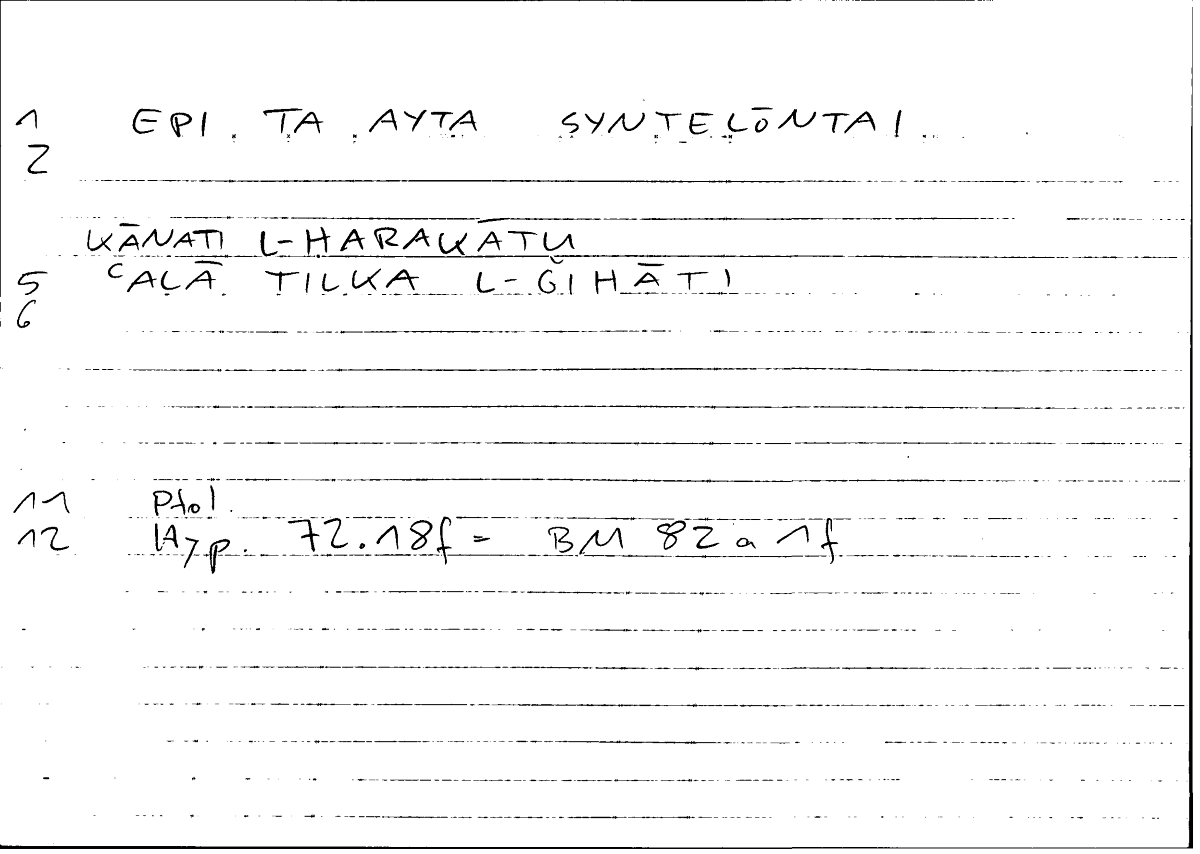 1 EPI TA AYTA SYNTELŌNTAI
2
KĀNATI L-HARAKĀTU
5 ʿALĀ TILKA L-ǦIHĀTI
6
11 Ptol.
12 Hyp. 72.18f = BM 82a 1f